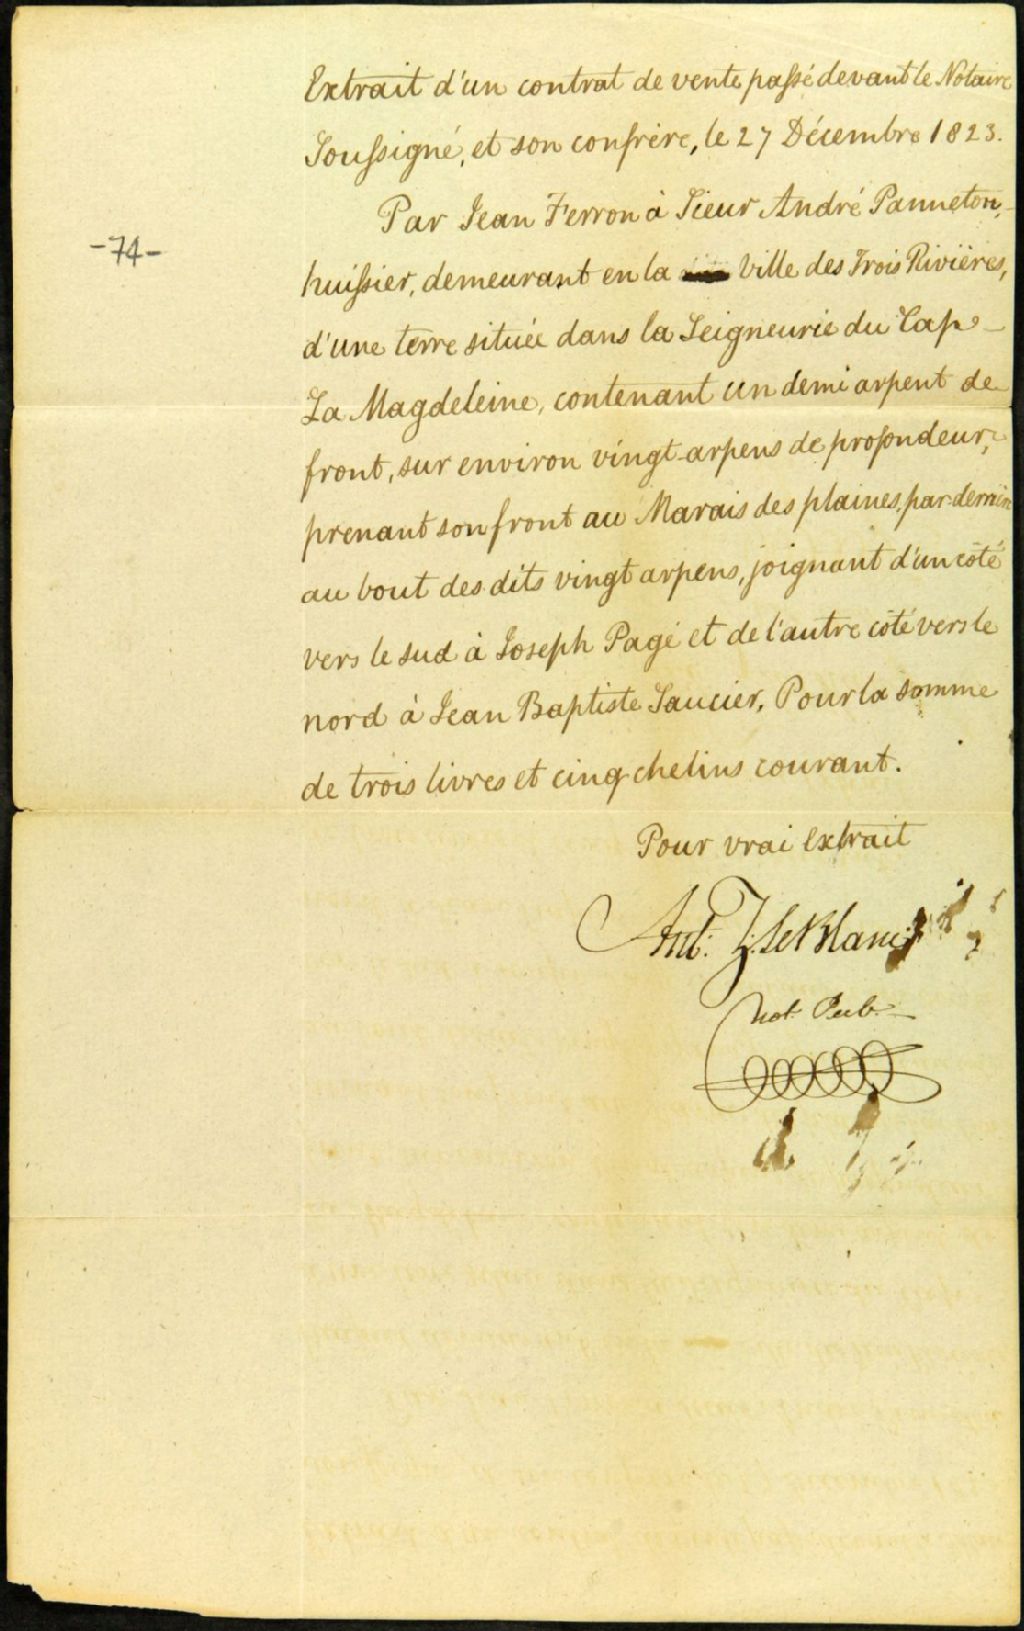 Extrait d'un contrat de vente passé devant le Notaire
Soussigné, et son confrère, le 27 Décembre 1823.
Par Jean Ferron à Sieur André Panneton,
-74-
huissier, demeurant en la ville des Trois Rivières,
d'une terre située dans la Seigneurie du Cap
La Magdeleine, contenant un demi arpent de
front, sur environ vingt arpens de profondeur,
prenant son front au Marais des plaines, par derrière
au bout des dits vingt arpens, joignant d'un côté
vers le sud à Joseph Pagé et de l'autre côté vers le
nord à Jean Baptiste Saucier, Pour la somme
de trois livres et cinq chelins courant.
Pour vrai Extrait
Ant. Z. LeBlanc
Not. Pub.